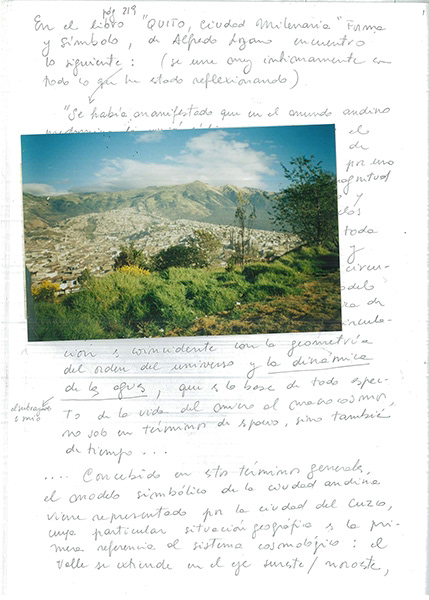 pág 219
En el libro "QUITO, Ciudad Milenaria" Forma
y Símbolo, de Alfredo Lozano encuentro
lo siguiente: (se une muy intimamente con
todo lo que he estado reflexionando)
"Se había manifestado que en el mundo andino
el
de
por una
magnitud
y
toda
y
circu-
de
ción es coincidente con la geometría
del orden del universo y la dinámica
de las aguas, que es la base de todo aspec-
to de la vida del micro al macrocosmos,
no solo en términos de espacio, sino también
de tiempo ...
el subrayado
es mío
.... Concebido en estos términos generales,
el modelo simbólico de la ciudad andina
viene representado por la ciudad del Cuzco,
cuya particular situación geográfica es la pri-
mera referencia al sistema cosmológico: el
Valle se extiende en el eje sureste/noroeste,